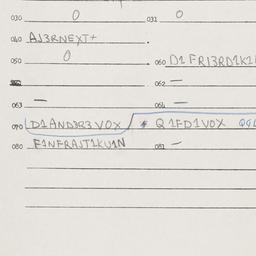 030 0 031 0
040 AJ3RNEXT+
050 0 060 D1FRI3RD1K1
062 —
063 — 064 —
070 D1AND3R3VOX * Q1FD1VOX
080 F1NFRAJT1KU1N 081 —